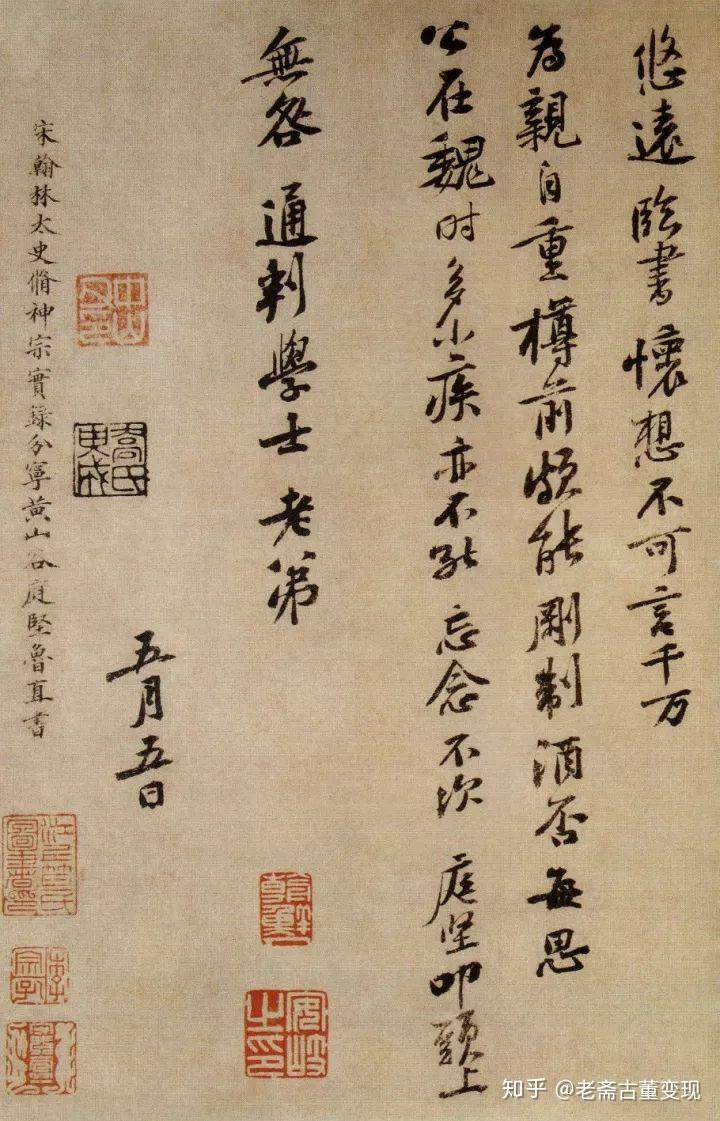 悠遠臨書懷想不可言千万
為親自重樽前頗能剛制酒否每思
公在魏时多小疾亦不能忘念不次 庭堅叩頭上
無咎 通判學士老弟
五月五日
宋翰林太史脩神宗實錄分寧黃山谷庭堅魯直書
安岐之印
知乎 @老斋古董变现